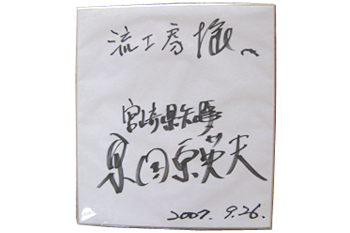 流工房様へ
宮崎県知事
東国原英夫
2007. 9.26.